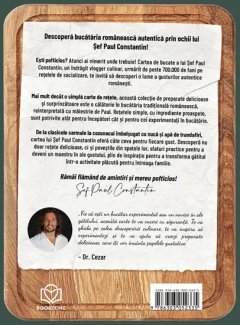 Descoperă bucătăria românească autentică prin ochii lui
Șef Paul Constantin!
Ești pofticios? Atunci ai nimerit unde trebuie! Cartea de bucate a lui Șef Paul
Constantin, un îndrăgit vlogger culinar, urmărit de peste 700.000 de fani pe
rețelele de socializare, te invită să descoperi o lume a gusturilor autentice
românești.
Mai mult decât o simplă carte de rețete, această colecție de preparate delicioase
și surprinzătoare este o călătorie în bucătăria tradițională românească,
reinterpretată cu măiestrie de Paul. Rețetele simple, cu ingrediente proaspete,
sunt potrivite atât pentru începători cât și pentru cei experimentați în bucătărie.
De la clasicele sarmale la cozonacul înmiresmat cu nucă și apă de trandafiri,
cartea lui Șef Paul Constantin oferă câte ceva pentru fiecare gust. Descoperă nu
doar rețete delicioase, ci și povestea din spatele lor, sfaturi practice pentru a
deveni un maestru în ale gustului, plin de inspirație pentru a transforma gătitul
într-o activitate plăcută pentru întreaga familie.
Rămâi flămând de amintiri și mereu pofticios!
Șef Paul Constantin
„Fie că ești un bucătar experimentat sau un novice în ale
gătitului, această carte te va cuceri cu siguranță. Te va
ghida pe calea descoperirii culinare, te va inspira să
experimentezi și te va ajuta să creezi preparate
delicioase, care îți vor încânta papilele gustative."
- Dr. Cezar
BOOKZONE